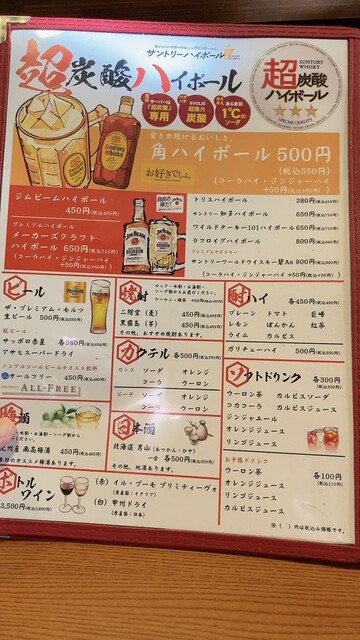 サントリーハイボール
超炭酸ハイボール
専用
超炭酸
1℃
超炭酸
ハイボール
SUNTORY
WHISKY
愛され続けるおいしさ。
角ハイボール 500円
(税込550円)
(コーラハイ・ジンジャーハイ)
+50円
お好きでしょ。
ジムビームハイボール
450円(税込495円)
プレミアムハイボール
メーカーズクラフト
ハイボール 650円(税込715円)
(コーラハイ・ジンジャーハイ
+50円(税込55円))
トリスハイボール 380円
サントリー知多ハイボール 650円(税込715円)
ワイルドターキー101ハイボール 650円(税込715円)
ラフロイグハイボール 800円(税込880円)
プレミアムウイスキー
サントリーワールドウイスキー碧Ao 800円(税込880円)
(コーラハイ・ジンジャーハイ +50円(税込55円))
ビール
ザ・プレミアム・モルツ
生ビール 500円
瓶ビール
サッポロ赤星 各580円
アサヒスーパードライ
ノンアルコールビールテイスト飲料
オールフリー 450円
ALL-FREE
焼酎
ロック・水割・お湯割・
ソーダ割からお選びください。
二階堂(麦) 450円
黒霧島(芋) 450円
その他、おすすめ焼酎あります。
酎ハイ 各450円(税込495円)
プレーン トマト 巨峰
レモン ぽんかん 紅茶
ライム カルピス
ガリチューハイ 500円
カクテル 各500円
カシス ソーダ オレンジ
コーラ ウーロン
ピーチ ソーダ オレンジ
コーラ ウーロン
ソフトドリンク 各300円
ウーロン茶 カルピスソーダ
コカコーラ カルピスジュース
ジンジャエール
オレンジジュース
リンゴジュース
梅酒
南高梅酒 450円
本日のオススメ梅酒あります。
日本酒
北海道 男山(あつかん・ひや)
一合 各500円
その他、地酒あります。
お子様ドリンク
ウーロン茶 各100円
オレンジジュース
リンゴジュース
カルピスジュース
ボトルワイン
3,500円
(赤) イル・プーモ プリミティーヴォ
(原産国:イタリア)
(白) 甲州ドライ
(原産国:日本)
※( )内は税込み価格です。